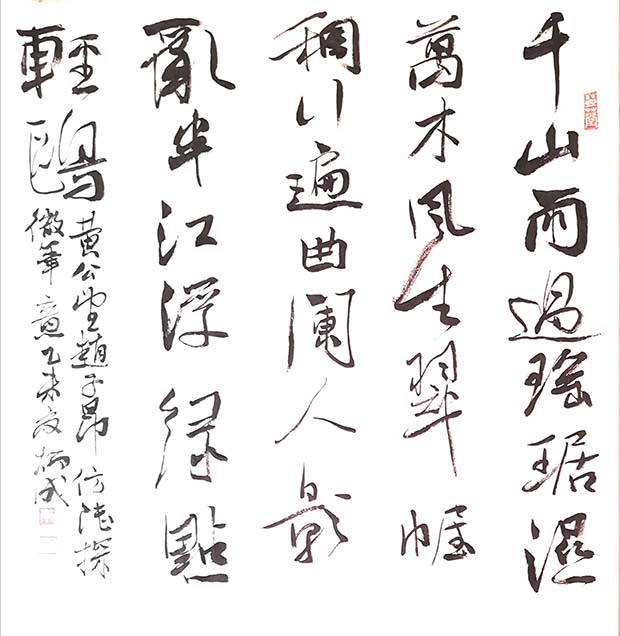 千山雨過瑤琚濕
萬木風生翠幄
稠行遍曲闌人影
亂半江浮綠點
輕鷗
黃公望趙子昂仿陸探
微筆意乙未夏